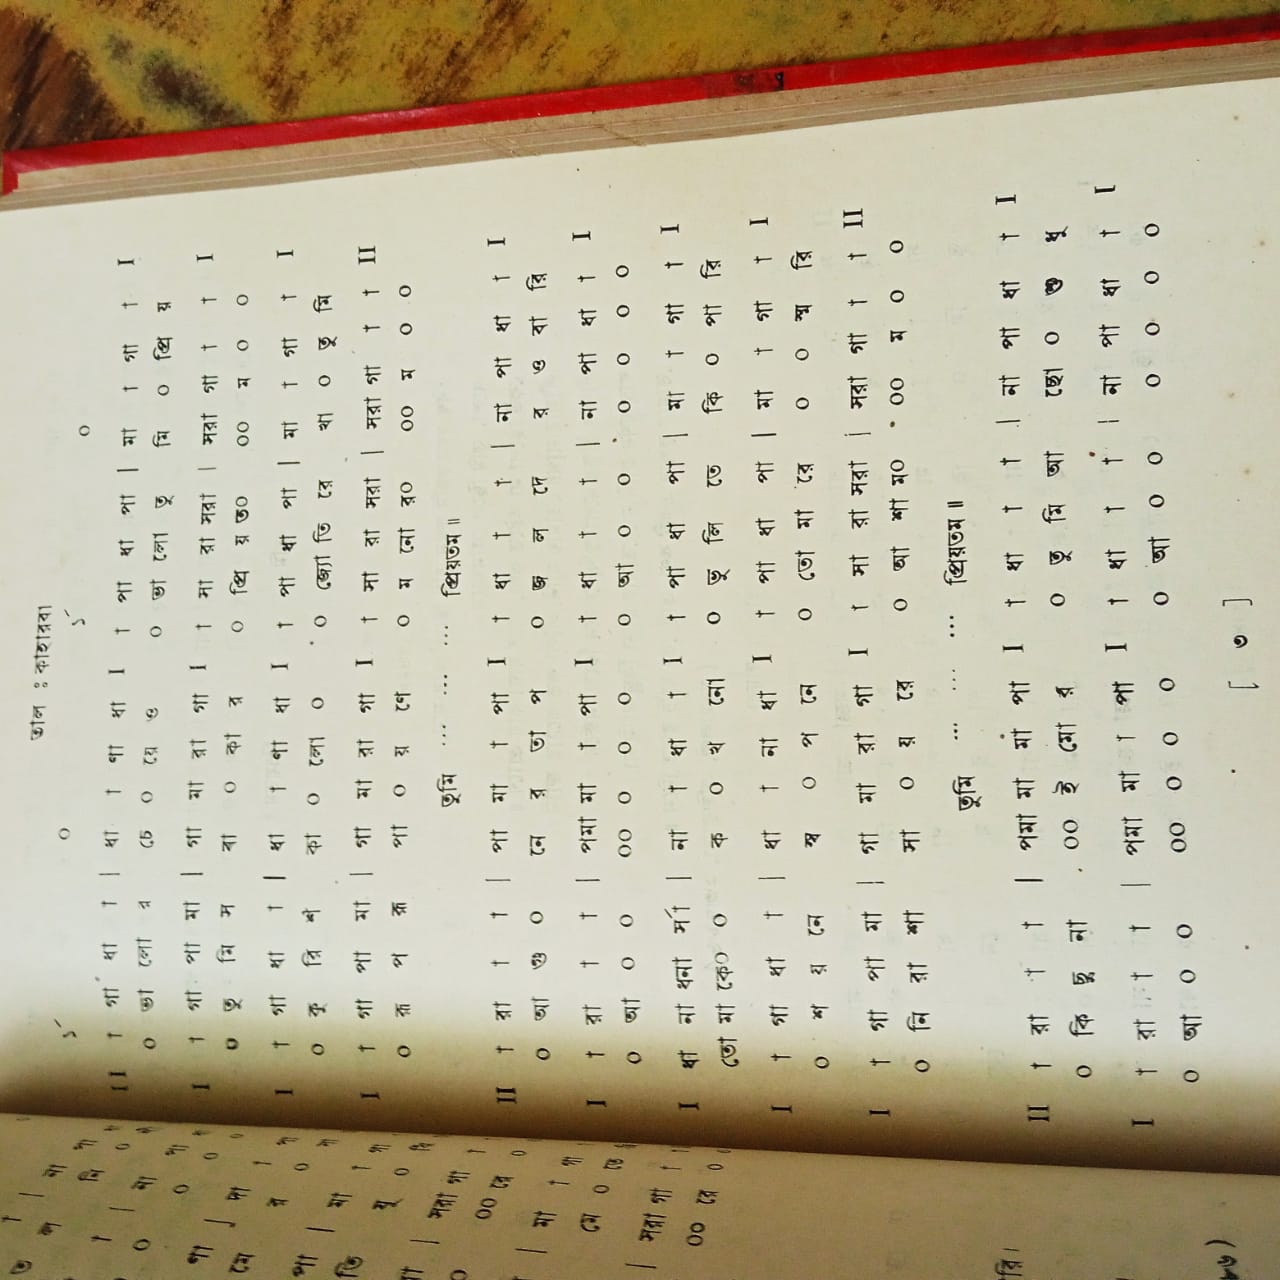 তাল : কাহারবা
১´ ০ ১´ ০
II † গা ধা † | ধা † ণা ধা I † পা ধা পা | মা † গা † I
০ ভা লো র চে ০ য়ে ও ০ ভা লো তু মি ০ প্রি য়
I † গা পা মা | গা মা রা গা I † মা রা সরা | সরা গা † † I
০ তু মি স বা ০ কা র ০ প্রি য় ত০ ০০ ম ০ ০
I † গা ধা † | ধা † ণা ধা I † পা ধা পা | মা † গা † I
০ কৃ রি শ কা ০ লো ০ ০ জ্যো তি রে ধা ০ তু মি
I † গা পা মা | গা মা রা গা I † মা রা সরা | সরা গা † † II
০ রূ প রূ পা ০ য় ণে ০ ম নো র০ ০০ ম ০ ০
তুমি ... ... ... প্রিয়তম॥
II † রা † † | পা মা † পা I † ধা † † | না পা ধা † I
০ আ গু ০ নে র তা প ০ জ ল দে র ও বা রি
I † রা † † | পমা মা † পা I † ধা † † | না পা ধা † I
০ আ ০ ০ ০০ ০ ০ ০ ০ আ ০ ০ ০ ০ ০ ০
I ধা না ধনা র্সা | না † ধা † I † পা ধা পা | মা † গা † I
তো মা কে০ ০ ক ০ খ নো ০ ভু লি তে কি ০ পা রি
I † গা ধা † | ধা † না ধা I † পা ধা পা | মা † গা † I
০ শ য় নে স্ব ০ প নে ০ তো মা রে ০ ০ স্ম রি
I † গা পা মা | গা মা রা গা I † মা রা সরা | সরা গা † † II
০ নি রা শা সা ০ য় রে ০ আ শা ম০ ০০ ম ০ ০
তুমি ... ... ... প্রিয়তম॥
II † রা † † | পমা মা মা পা I † ধা † † | না পা ধা † I
০ কি ছু না ০০ ই মো র ০ তু মি আ ছো ০ শু ধু
I † রা † † | পমা মা † পা I † ধা † † | না পা ধা † I
০ আ ০ ০ ০০ ০ ০ ০ ০ আ ০ ০ ০ ০ ০ ০
[ ৩ ]